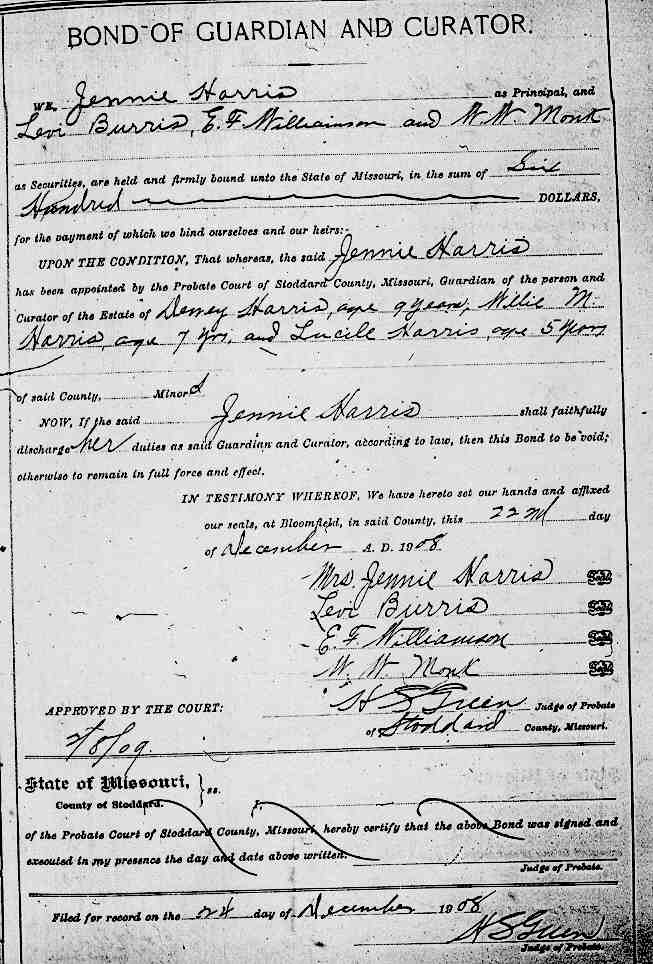 BOND OF GUARDIAN AND CURATOR.
WE, Jennie Harris as Principal, and
Levi Burris, E. F. Williamson and W. W. Monk
as Securities, are held and firmly bound unto the State of Missouri, in the sum of Six
Hundred DOLLARS,
for the payment of which we bind ourselves and our heirs:-
UPON THE CONDITION, That whereas, the said Jennie Harris
has been appointed by the Probate Court of Stoddard County, Missouri, Guardian of the person and
Curator of the Estate of Dewey Harris, age 9 years, Willie M.
Harris, age 7 yrs, and Lucile Harris, age 5 years
of said County, Minors
NOW, If the said Jennie Harris shall faithfully
discharge her duties as said Guardian and Curator, according to law, then this Bond to be void;
otherwise to remain in full force and effect.
IN TESTIMONY WHEREOF, We have hereto set our hands and affixed
our seals, at Bloomfield, in said County, this 22nd day
of December A. D. 1908.
Mrs. Jennie Harris Seal
Levi Burris Seal
E. F. Williamson Seal
W. W. Monk Seal
APPROVED BY THE COURT: H S Green Judge of Probate
of Stoddard County, Missouri.
2/8/09.
State of Missouri, } ss.
County of Stoddard.
I,
of the Probate Court of Stoddard County, Missouri, hereby certify that the above Bond was signed and
executed in my presence the day and date above written.
Judge of Probate.
Filed for record on the 24 day of December 1908
H S Green
Judge of Probate.